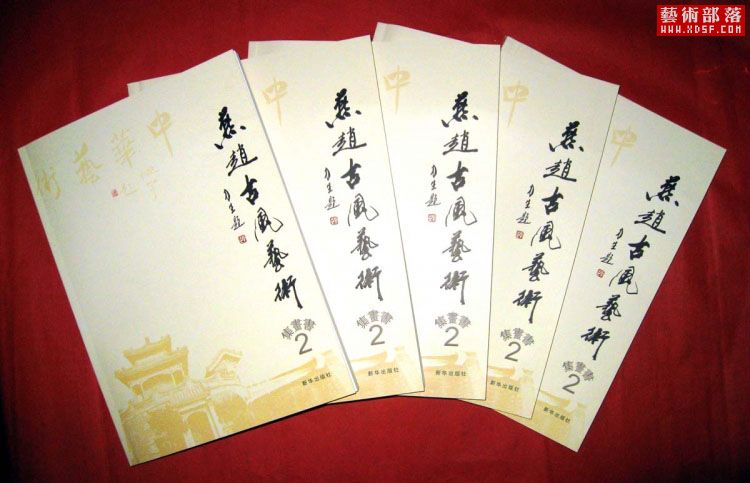 藝術部落
WWW.XDSF.COM
中華藝術
燕趙古風藝術
書畫集
2
新华出版社
中
燕趙古風藝術
書畫集
2
新华出版社
中
燕趙古風藝術
書畫集
2
新华出版社
中
燕趙古風藝術
書畫集
2
新华出版社
中
燕趙古風藝術
書畫集
2
新华出版社